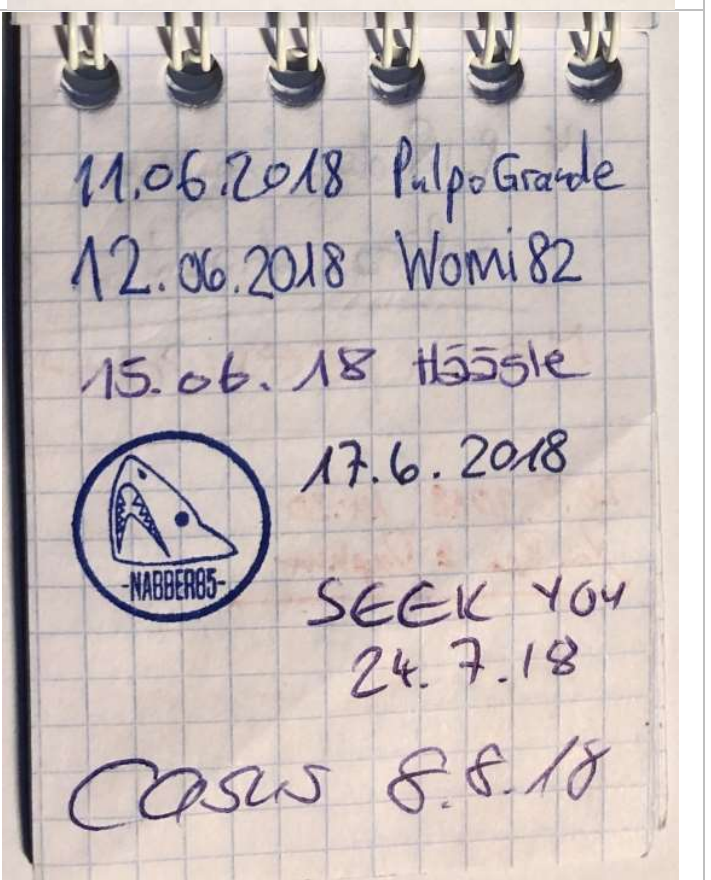 11.06.2018 PulpoGrande
12.06.2018 Womi82
15.06.18 Hääsle
17.6.2018
-NABBER85-
SEEK YOU
24.7.18
Casus 8.8.18